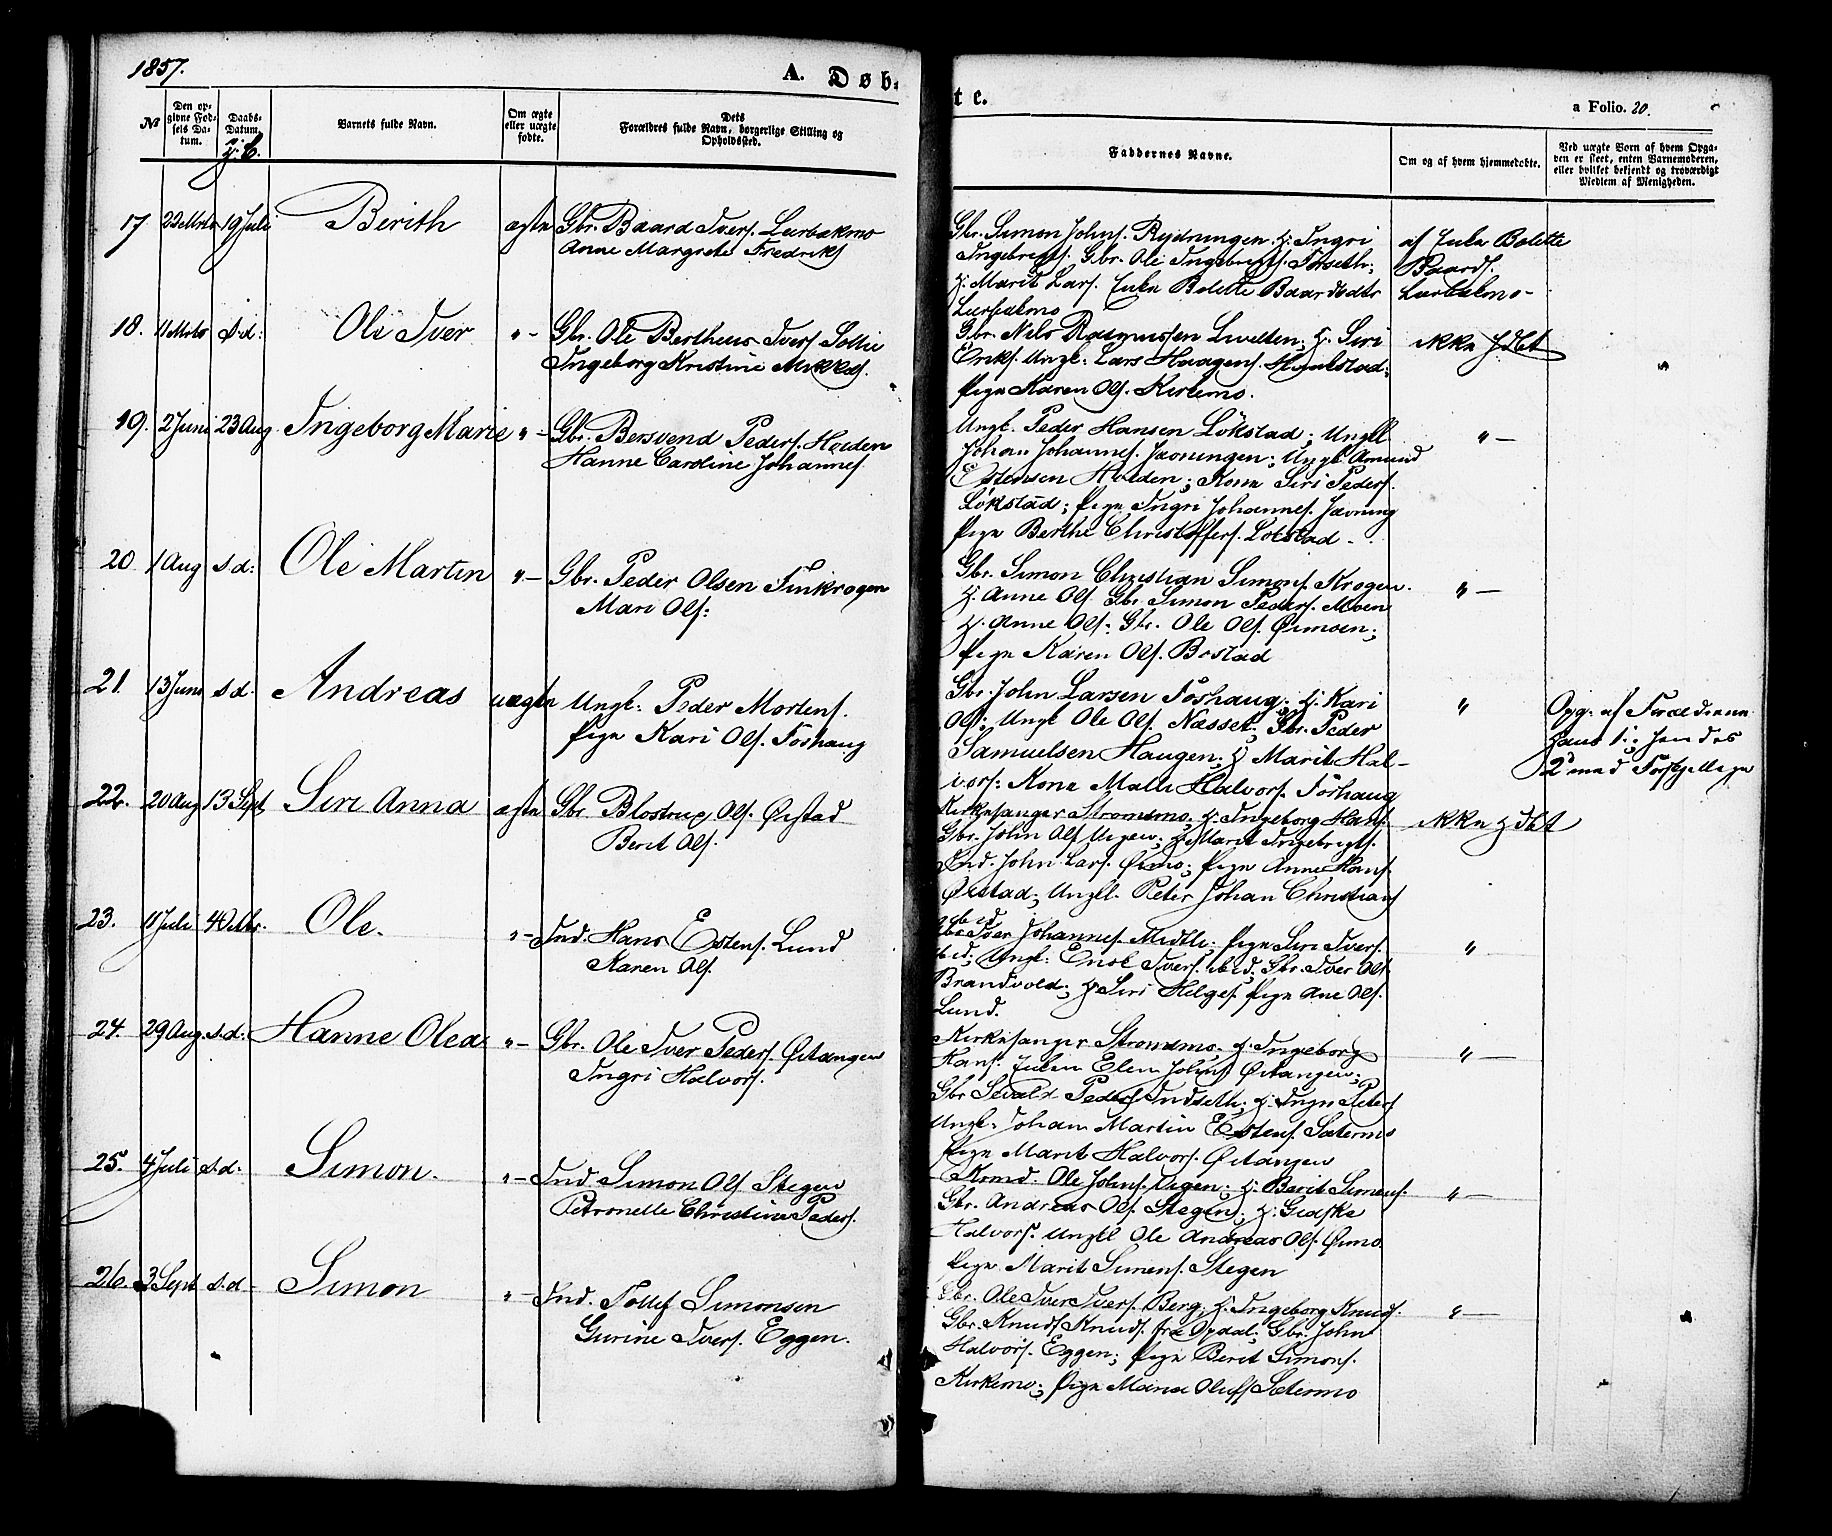 1857.
A. Døb-
te.
a Folio. 20.
№
Den opgivne Fødsels Datum.
Daabs-Datum.
Barnets fulde Navn.
Om ægte eller uægte fødte.
Dets Forældres fulde Navn, borgerlige Stilling og Opholdssted.
Faddernes Navne.
Om og af hvem hjemmedøbte.
Ved uægte Børn af hvem Opgaven er skeet, enten Barnemoderen, eller hvilket bekjendt og troværdigt Medlem af Menigheden.
17 19 Juli Berith ægte Gbr. Baard Ivers. Lurbakmo
Anne Margrete Fredriks
Gbr. Simon Johns. Rydningen. H: Ingri
Ingebregts. Gbr. Ole Ingebregts. Forseth;
H: Marit Lars. Bolette Baardsdtr
Lurbakmo
af Bolette
Baards.
Lurbakmo -
18. s.d: Ole Iver " - Gbr. Ole Bertheus Ivers. Sollie
Ingeborg Kristine Mikkels.
Gbr. Nils Rasmussen H: Siri
Eriks. Ungk: Lars Haagens.
Pige Karen Ols. Kirkemo.
ikke hdbt
19. 2 Juni 23 Aug. Ingeborg Marie " - Gbr. Bersvend Peders. Holden
Hanne Caroline Johannes.
Ungk. Peder Hansen Lökstad; Ungkl
Johan Johannes. Jævningen; Ungk. Amund
Estensen Holden; Kone Siri Peders.
Lökstad; Pige Ingri Johannes. Jævning
Pige Berthe Christoffers. Lökstad -
" -
20 1 Aug s.d: Ole Martin " - Gbr. Peder Olsen Finkrogen
Mari Ols:
Gbr. Simon Christian Simons. Krogen.
H. Anne Ols. Gbr. Simon Peders. Moen
H. Anne Ols. Gbr. Ole Ols. Ørmoen;
Pige Karen Ols. Bostad
" -
21. 13 Juni s.d. Andreas uægte Ungk: Peder Mortens.
Pige Kari Ols. Forhaug
Gbr. John Larsen Forhaug; H: Kari
Ols; Ungk Ole Ols. Næsset; Gbr. Peder
Samuelsen Haugen; H Marit Hal-
vors: Kone Malli Halvors. Forhaug
"
Opg. af Forældrene
hans 1: hendes
2 med Forskjellige
22. 20 Aug 13 Sept Siri Anna ægte Gbr. Blostrup Ols. Ørstad
Berit Ols.
Kirkesanger Strommo, H: Ingeborg Hans.
Gbr. John Ols H: Marit Ingebrigts.
Ind. John Lars. Ørmo; Pige Anne Hans.
Ørstad; Ungkl. Peter Johan Christians
ibid
ikke hdbt
23. 11 Juli 4 Octbr. Ole. " - Ind. Hans Estens. Lund
Karen Ols.
Gbr. Iver Johannes. Midtli; Pige Siri Ivers.
ibid; Ungk: Erik Ivers. ibid; Gbr. Iver Ols
Brandvold; H: Siri Helges. Pige Ane Ols.
Lund.
"
24. 29 Aug s.d: Hanne Olea " - Gbr. Ole Iver Peders. Øitangen
Ingri Halvors.
Kirkesanger Strommo. H: Ingeborg
Hans. Elen Johns. Øitangen;
Gbr Sevald Peders Indseth; H:
Ungk. Johan Martin Estens. Sætermo
Pige Marit Halvors. Øitangen
" -
25. 4 Juli s.d. Simon. " - Ind Simon Ols Stegen
Petronelle Christine Peders.
Ole Johns. H: Berit Simens.
Gbr. Andreas Ols. Stegen; H: Gidske
Halvors. Ungkl Ole Andreas Ols. Ørmo.
Pige Marit Simens. Stegen
" -
26. 3 Sept s.d - Simon " - Ind. Tollef Simonsen
Gurine Ivers. Eggen.
Gbr. Ole Iver Ivers. Berg, H: Ingeborg Knuds.
Gbr. Knud Knuds. fra Opdal; Gbr. John
Halvors. Eggen; Pige Berit Simons.
Kirkemo; Pige Marie Olufs Sætermo
" -